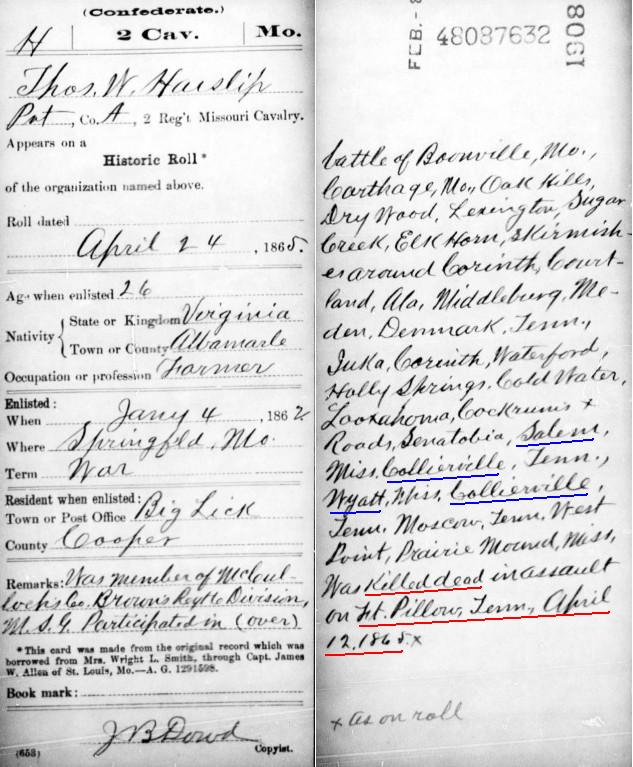 (Confederate.)
H 2 Cav. Mo.
Thos. W. Haislip
Pvt, Co. A, 2 Reg't Missouri Cavalry.
Appears on a
Historic Roll*
of the organization named above.
Roll dated
April 24, 1865.
Age when enlisted 26
Nativity State or Kingdom Virginia
Town or County Albamarle
Occupation or profession Farmer
Enlisted:
When Jany 4, 1862
Where Springfld, Mo.
Term War
Resident when enlisted:
Town or Post Office Big Lick
County Cooper
Remarks: Was member of McCul
lochs Co. Brown's Reg 6 Division,
M.S.G. Participated in (over)
*This card was made from the original record which was
borrowed from Mrs. Wright L. Smith, through Capt. James
W. Allen of St. Louis, Mo.—A. G. 1291598.
Book mark:
J B Dowd
(653) Copyist.
FEB.-8 48087632 1908
battle of Boonville, Mo.,
Carthage, Mo., Oak Hills,
Dry Wood, Lexington, Sugar
Creek, Elk Horn, Skirmish-
es around Corinth, Court-
land, Ala, Middleburg, Me-
den, Denmark, Tenn.,
Iuka, Corinth, Waterford,
Holly Springs, Cold Water,
Looxahoma, Cockrums x
Roads, Senatobia, Salem,
Miss. Collierville, Tenn.,
Wyatt, Miss, Collierville,
Tenn, Moscow, Tenn, West
Point, Prairie Mound, Miss,
Was Killed dead in assault
on Ft. Pillow, Tenn, April
12, 1865.x
x as on roll